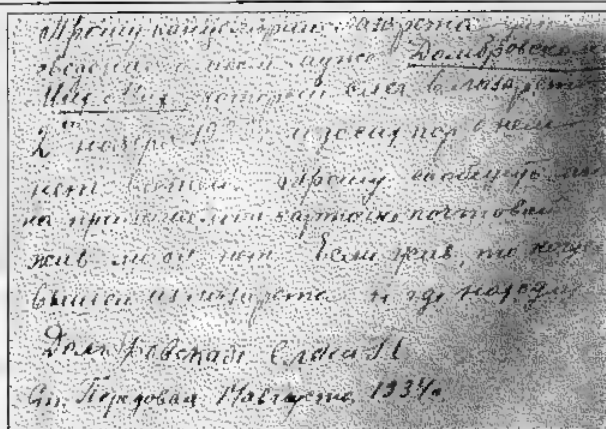 Прошу канцелярию лазарета
сведения о моём муже Домбровском
который слег в лазарет
2го ноября 19 и до сих пор о нем
нет вестей. Прошу сообщить мне
на прилагаемой карточке почтовой
жив ли он или нет Если жив, то когда
вышел из лазарета и где находи
Домбровская Елена
Ст. Передовая 14 августа 1934г.